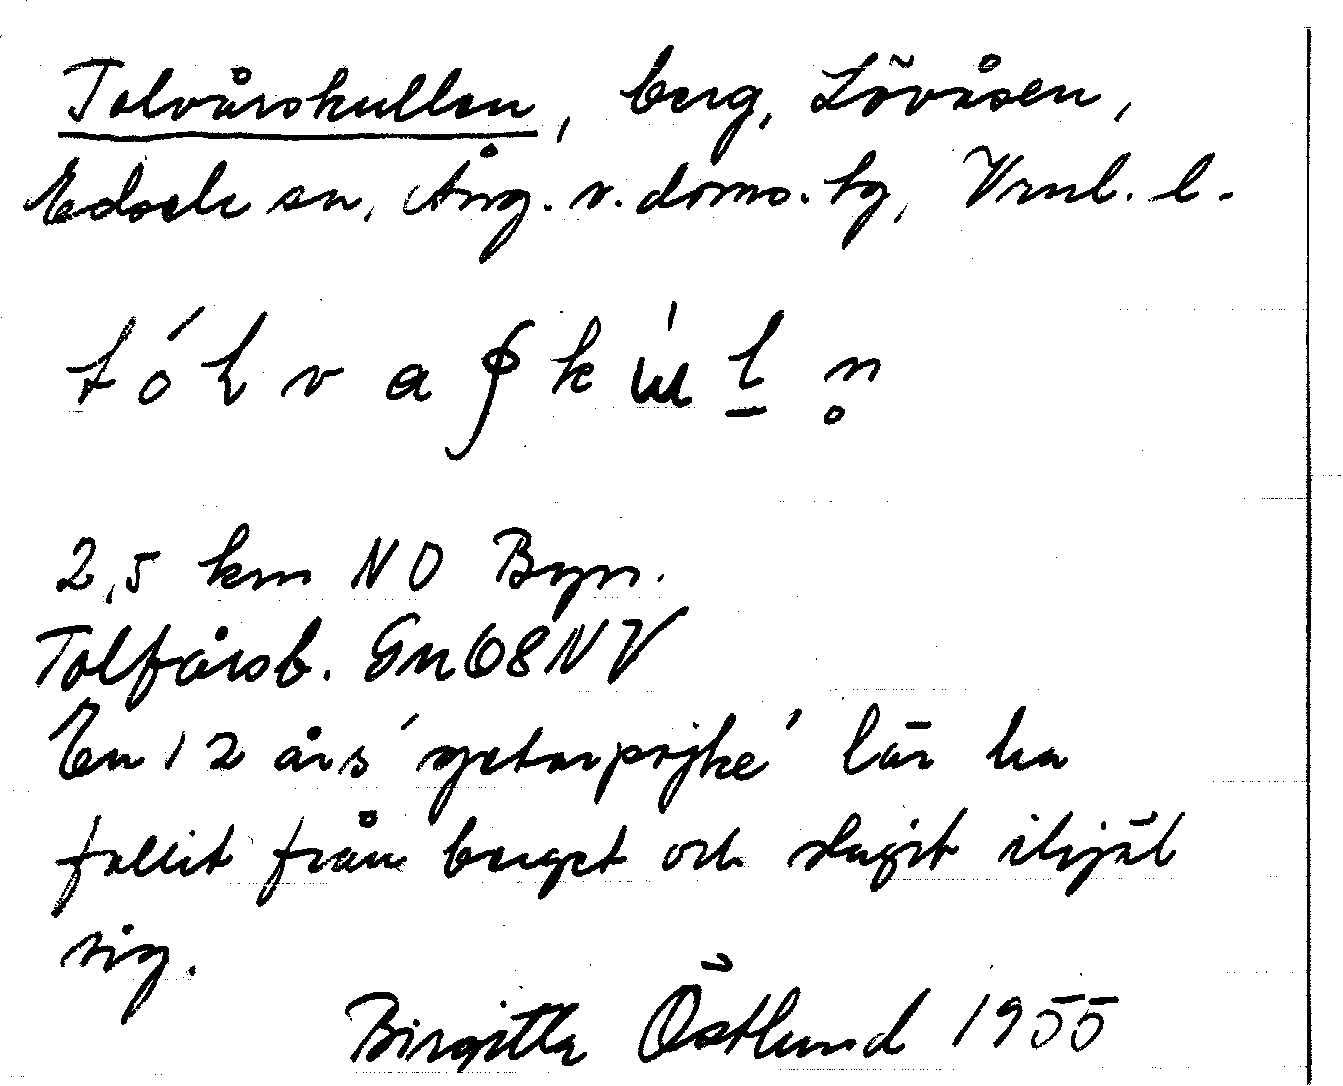 Tolvårskullen, berg, Lövåsen,
Edsele sn, Ång. v. doms. tg, Vrnl. l.
2,5 km NO Byn.
Tolfårsb. Gn68NV
En 12 års 'getarpojke' lär ha
fallit från berget och slagit ihjäl
sig.
Birgitta Östlund 1955